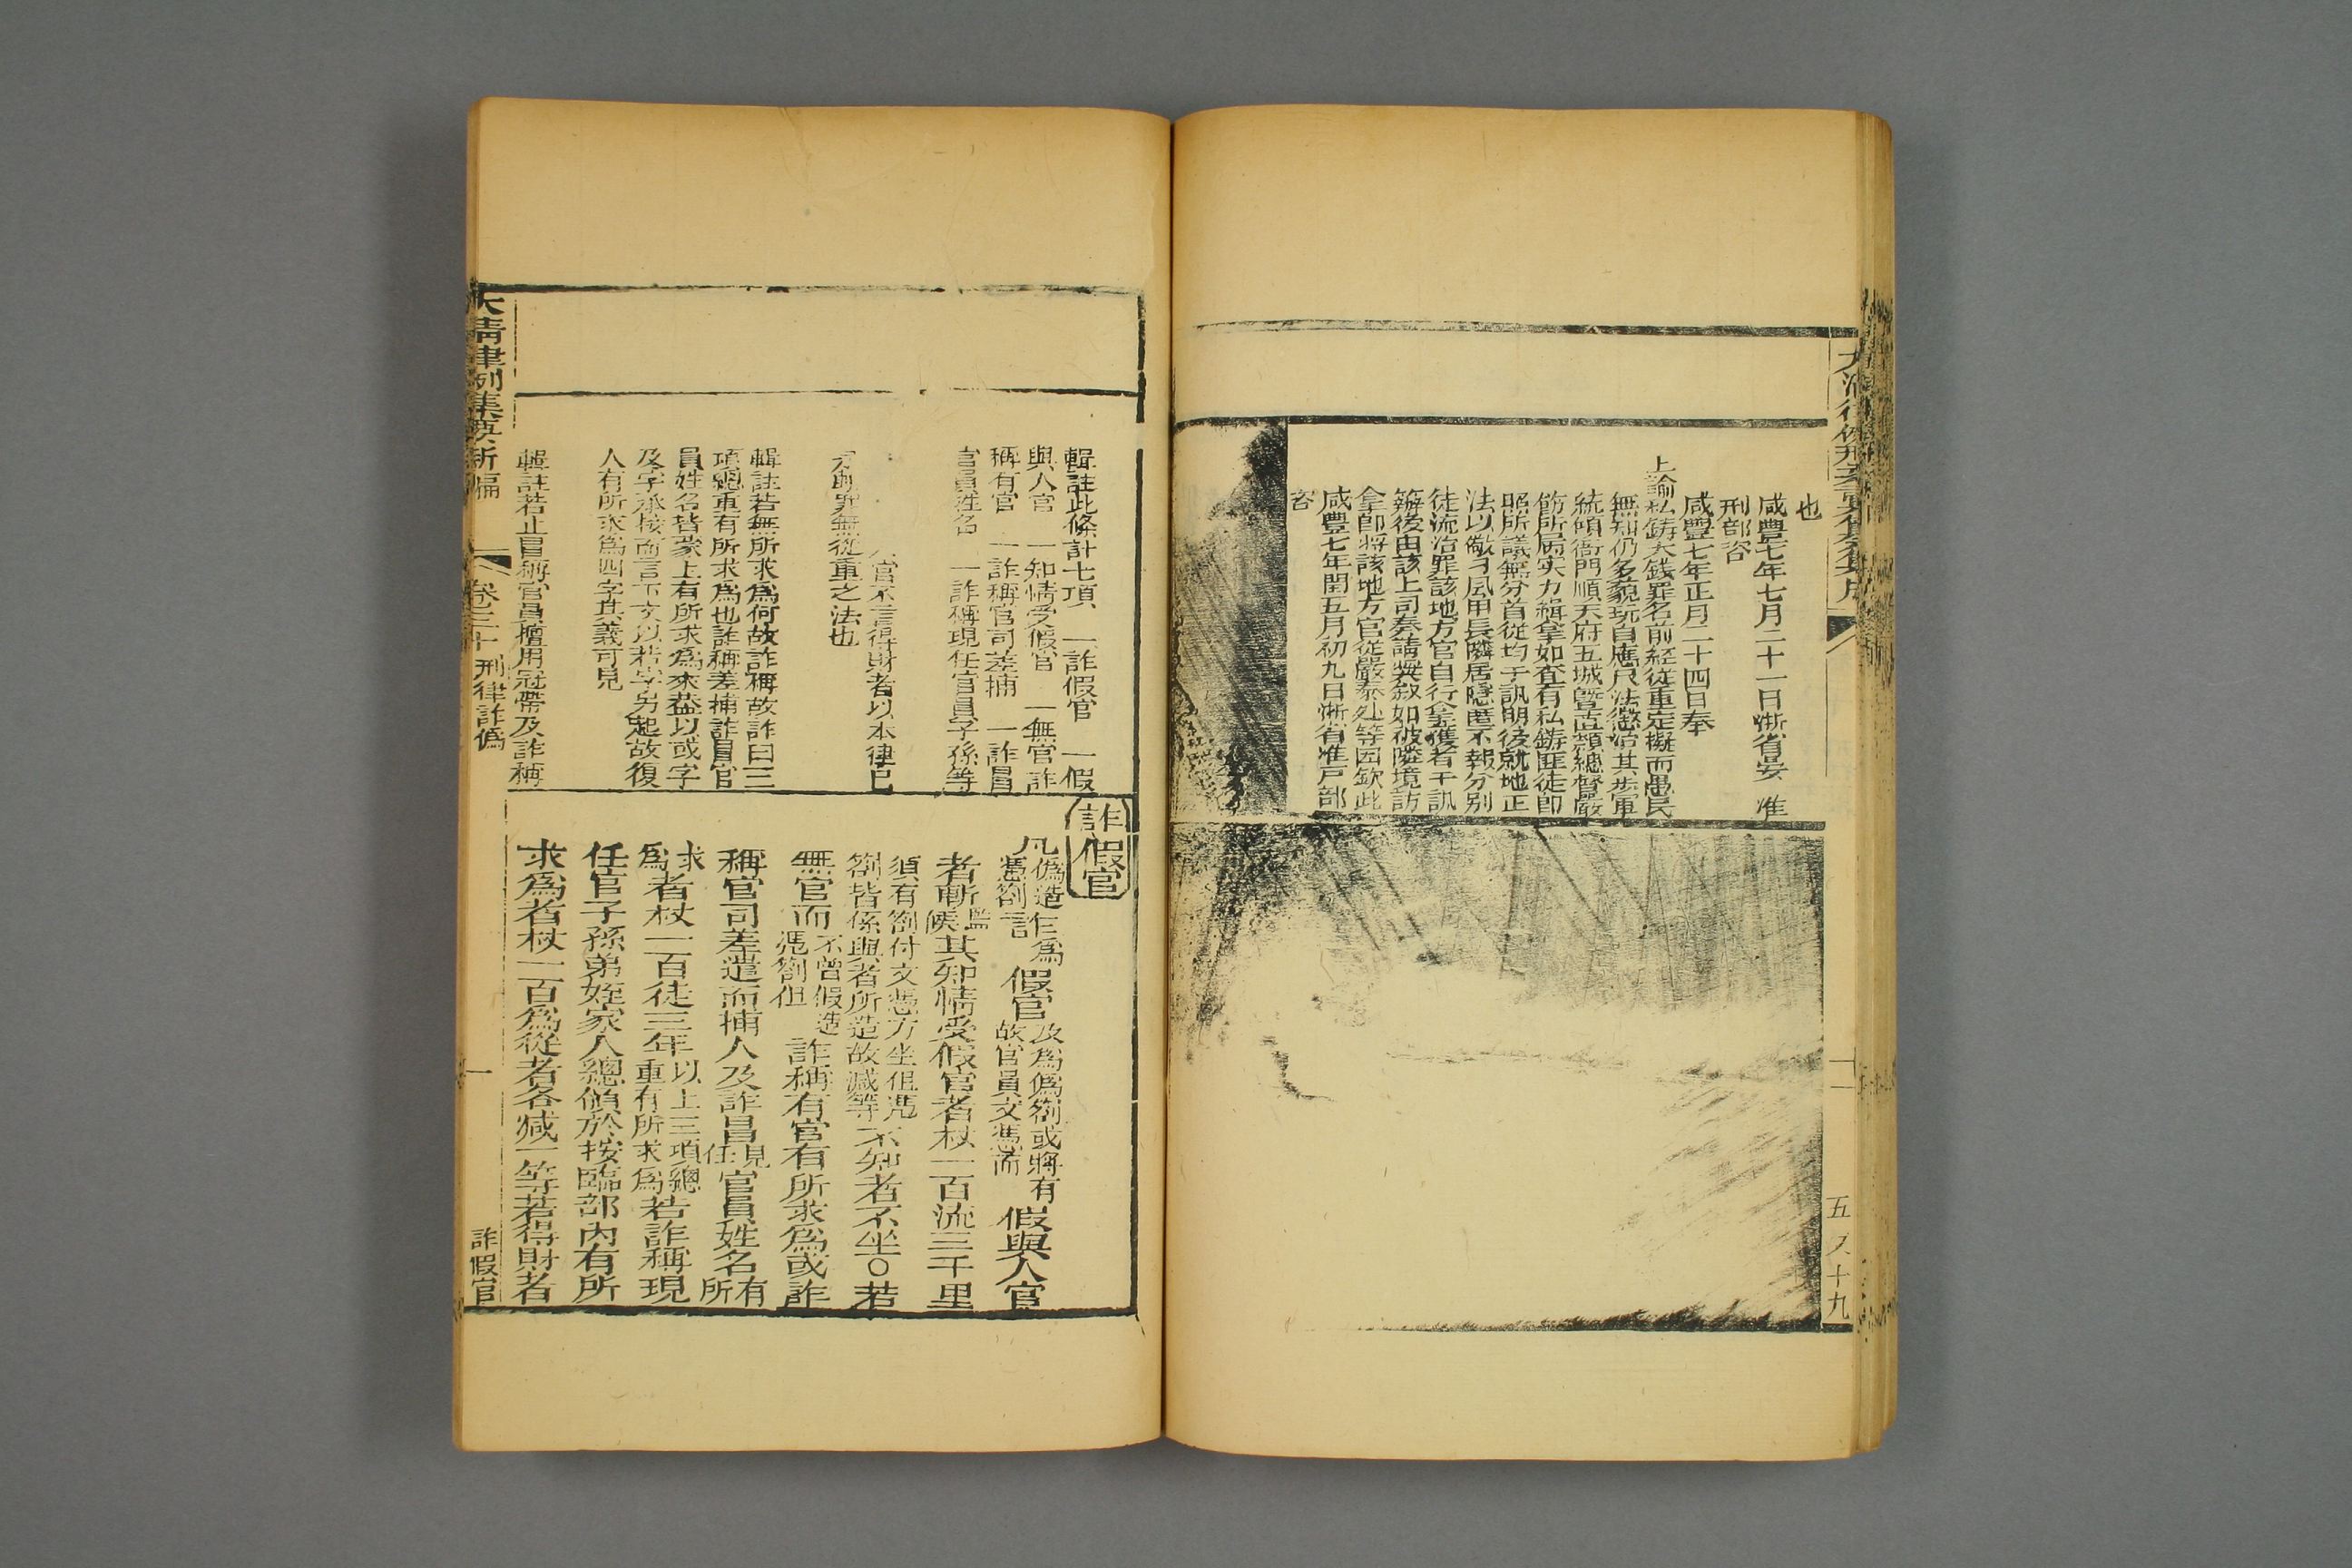 也
咸豐七年七月二十一日浙省晏 准
刑部咨
咸豐七年正月二十四日奉
上諭私鑄大錢罪名前經從重定擬而愚民
無知仍多藐玩自應尺法懲治其步軍
統領衙門順天府五城暨直隷總督嚴
飭所屬实力緝拿如查有私鑄匪徒即
昭所議無分首從均于訊明後就地正
法以儆刁風甲長隣居隱匿不報分別
徒流治罪該地方官自行拿獲者于訊
辦後由該上司奏請奬叙如被隣境訪
拿即將該地方官從嚴叅処等因欽此
咸豐七年閏五月初九日浙省准戸部
咨
五 十九
輯註此條計七項 一詐假官 一假
與人官 一知情受假官 一無官詐
稱有官 一詐稱官司差捕 一詐冒
官員姓名 一詐稱現任官員子孫等
官不言得財者以本律已
罪無從重之法也
輯註若無所求爲何故詐稱故詐曰三
項總重有所求爲也詐稱差捕詐冒官
員姓名皆蒙上有所求爲來葢以或字
及字承接而言下文以若字另起故復
人有所求爲四字其義可見
輯註若止冒稱官員擅用冠帶及詐稱
詐假官
凡僞造憑劄詐爲假官及爲僞劄或將有故官員文憑而假與人官
者斬監候其知情受假官者杖一百流三千里
須有劄付文憑方坐但憑劄皆係與者所造故減等不知者不坐〇若
無官而不曾假造憑劄但詐稱有官有所求爲或詐
稱官司差遣而捕人及詐冒見任官員姓名有所
求爲者杖一百徒三年以上三項總重有所求爲若詐稱現
任官子孫弟姪家人總領於按臨部內有所
求爲者杖一百爲從者各減一等若得財者
大清律例集要新編 卷三十 刑律詐僞 一 詐假官